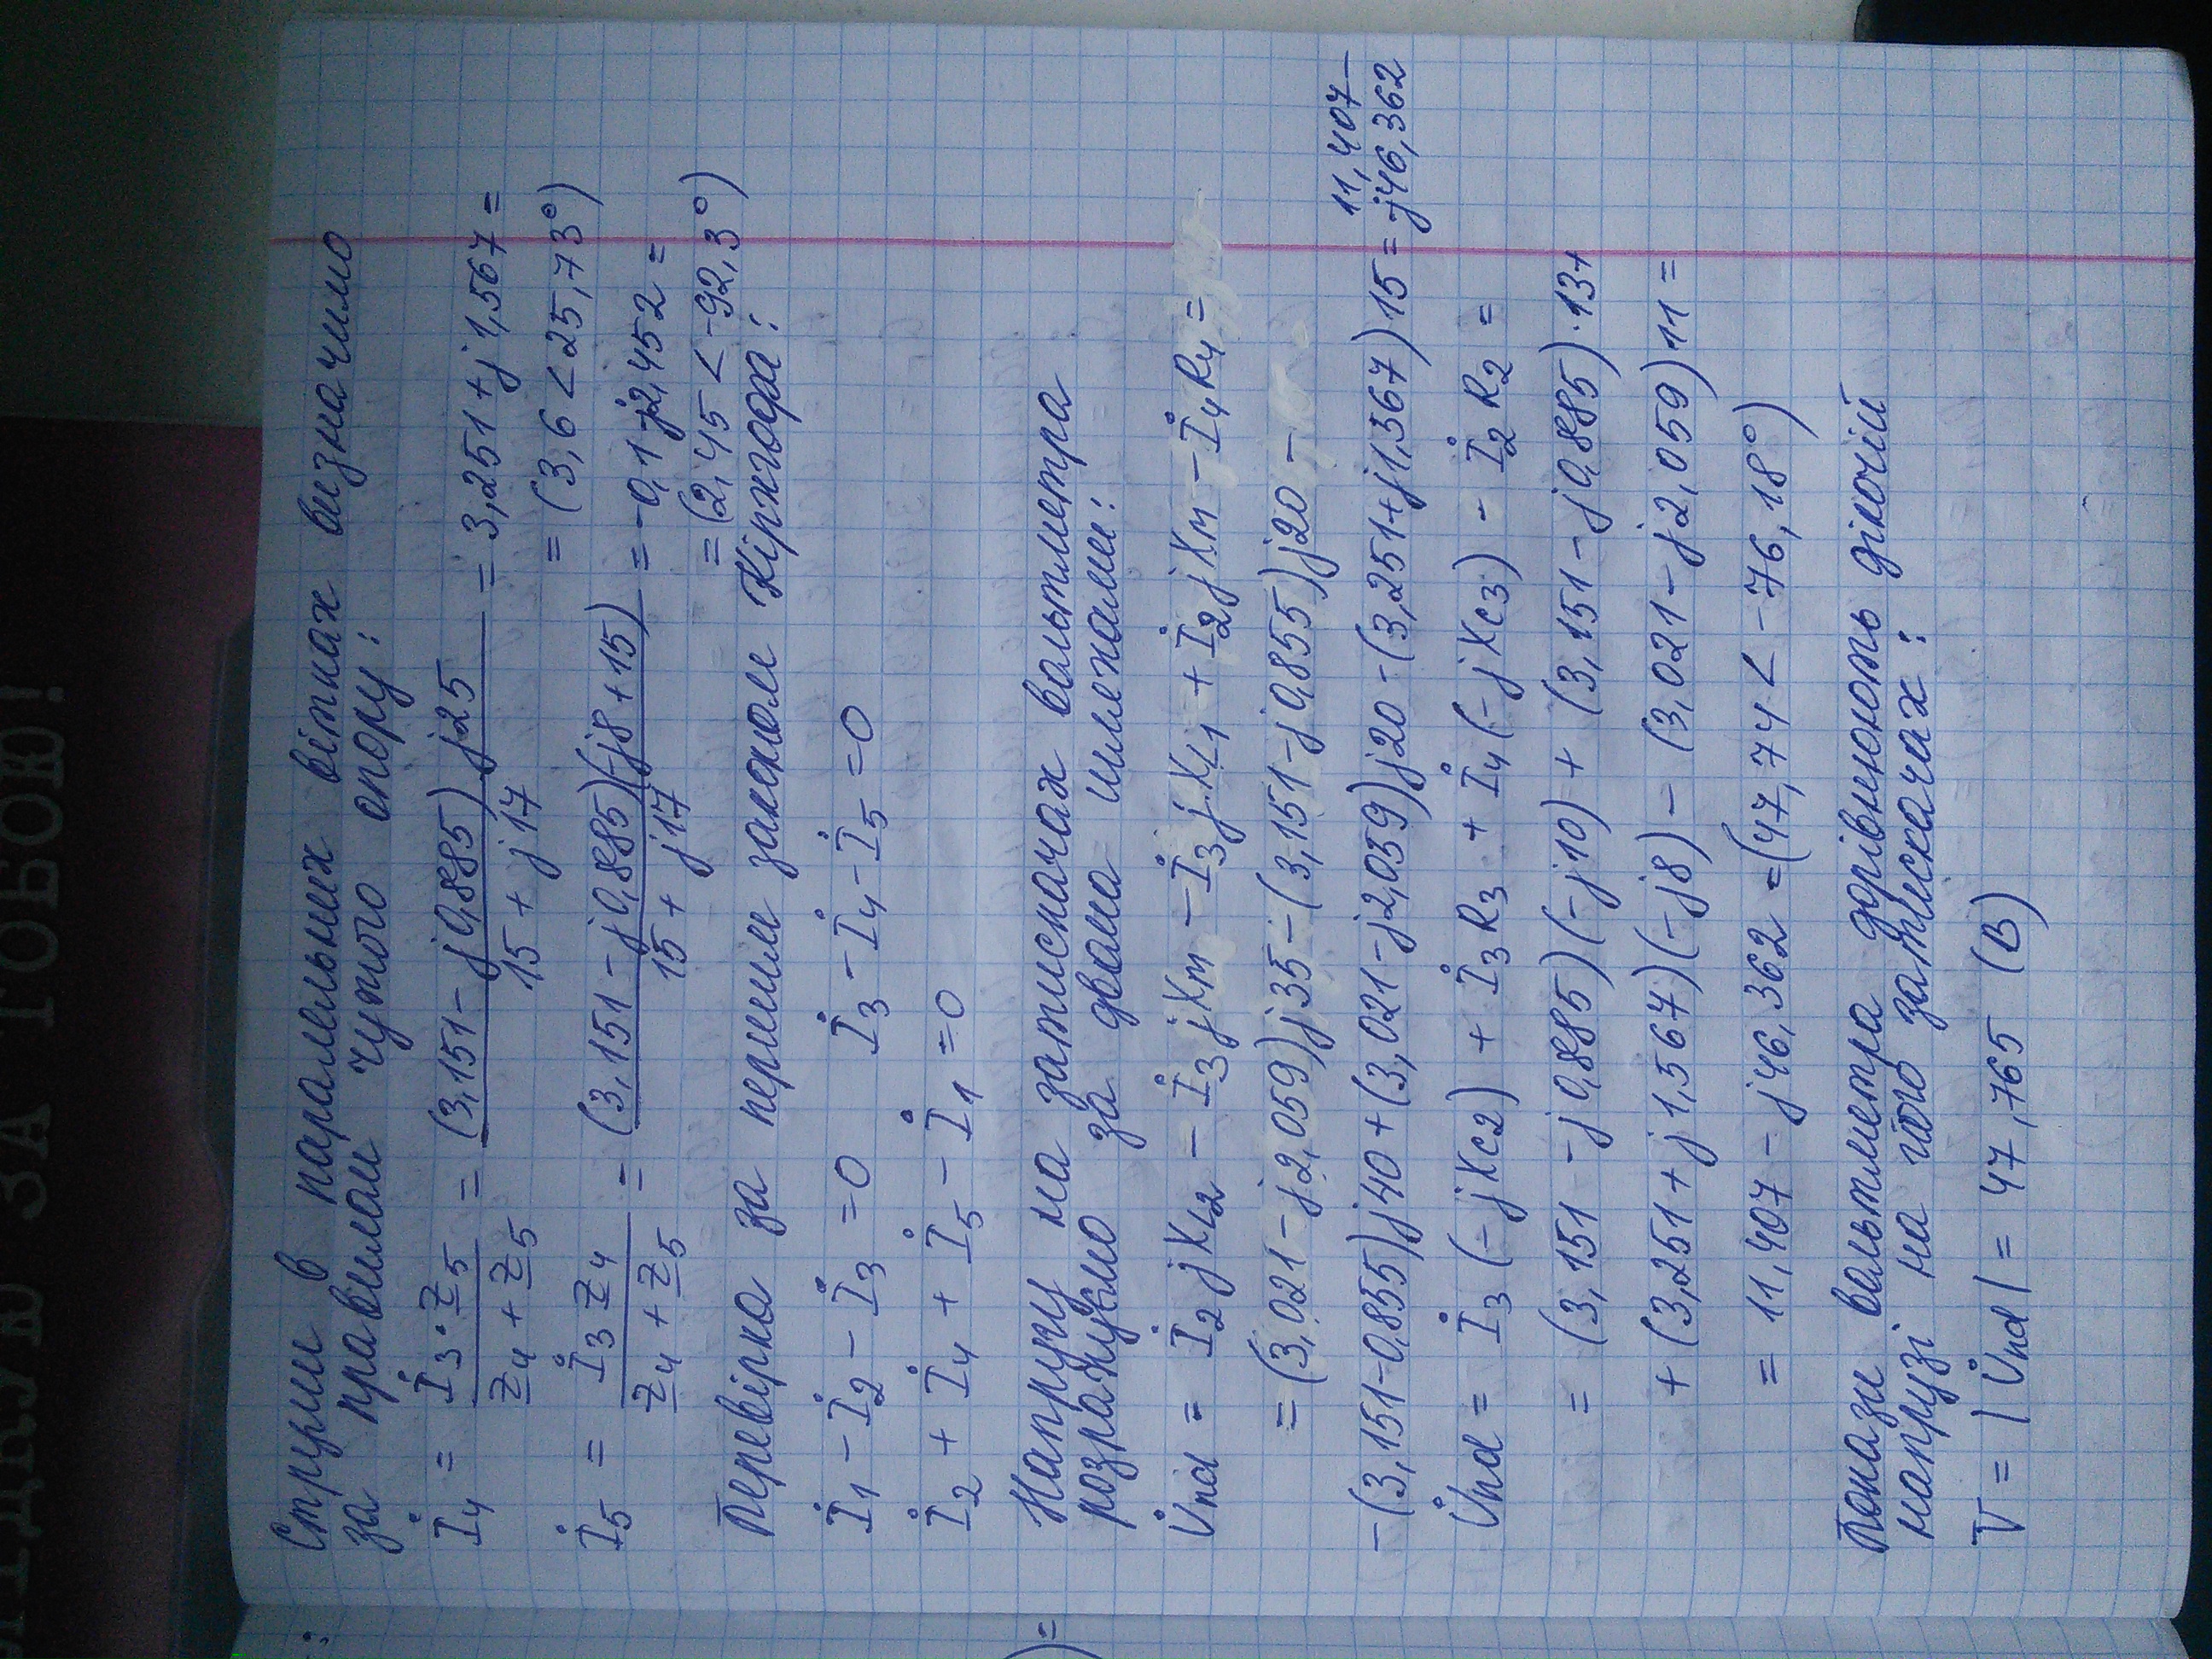 Струми в паралельних вітках визначимо
за правилом чужого опору:
İ4 = İ3·Z5 / (Z4 + Z5) = (3,151 - j0,885) j25 / (15 + j17) = 3,251 + j1,567 =
= (3,6 < 25,73°)
İ5 = İ3 Z4 / (Z4 + Z5) = (3,151 - j0,885)(-j8+15) / (15 + j17) = -0,1-j2,452 =
= (2,45 < -92,3°)
Перевірка за першим законом Кірхгофа:
İ1 - İ2 - İ3 = 0 İ3 - İ4 - İ5 = 0
İ2 + İ4 + İ5 - İ1 = 0
Напругу на затискачах вольтметра
розрахуємо за двома шляхами:
U̇nd = İ2 jXL2 - İ3 jXm - İ3 jXL1 + İ2 jXm - İ4R4 =
= (3,021 - j2,059)j35 - (3,151 - j0,855)j20 -
-(3,151-0,855)j40 + (3,021-j2,059)j20 - (3,251+j1,367)15 = 11,407 -
-j46,362
U̇nd = İ3 (-jXc2) + İ3 R3 + İ4(-jXc3) - İ2 R2 =
= (3,151 - j0,885)(-j10) + (3,151 - j0,885)·13+
+ (3,251 + j1,567)(-j8) - (3,021 - j2,059)11 =
= 11,407 - j46,362 = (47,74 < -76,18°)
Покази вольтметра дорівнюють діючій
напрузі на його затискачах:
V = |U̇nd| = 47,765 (В)
)=
ЗА ТОБОЮ!